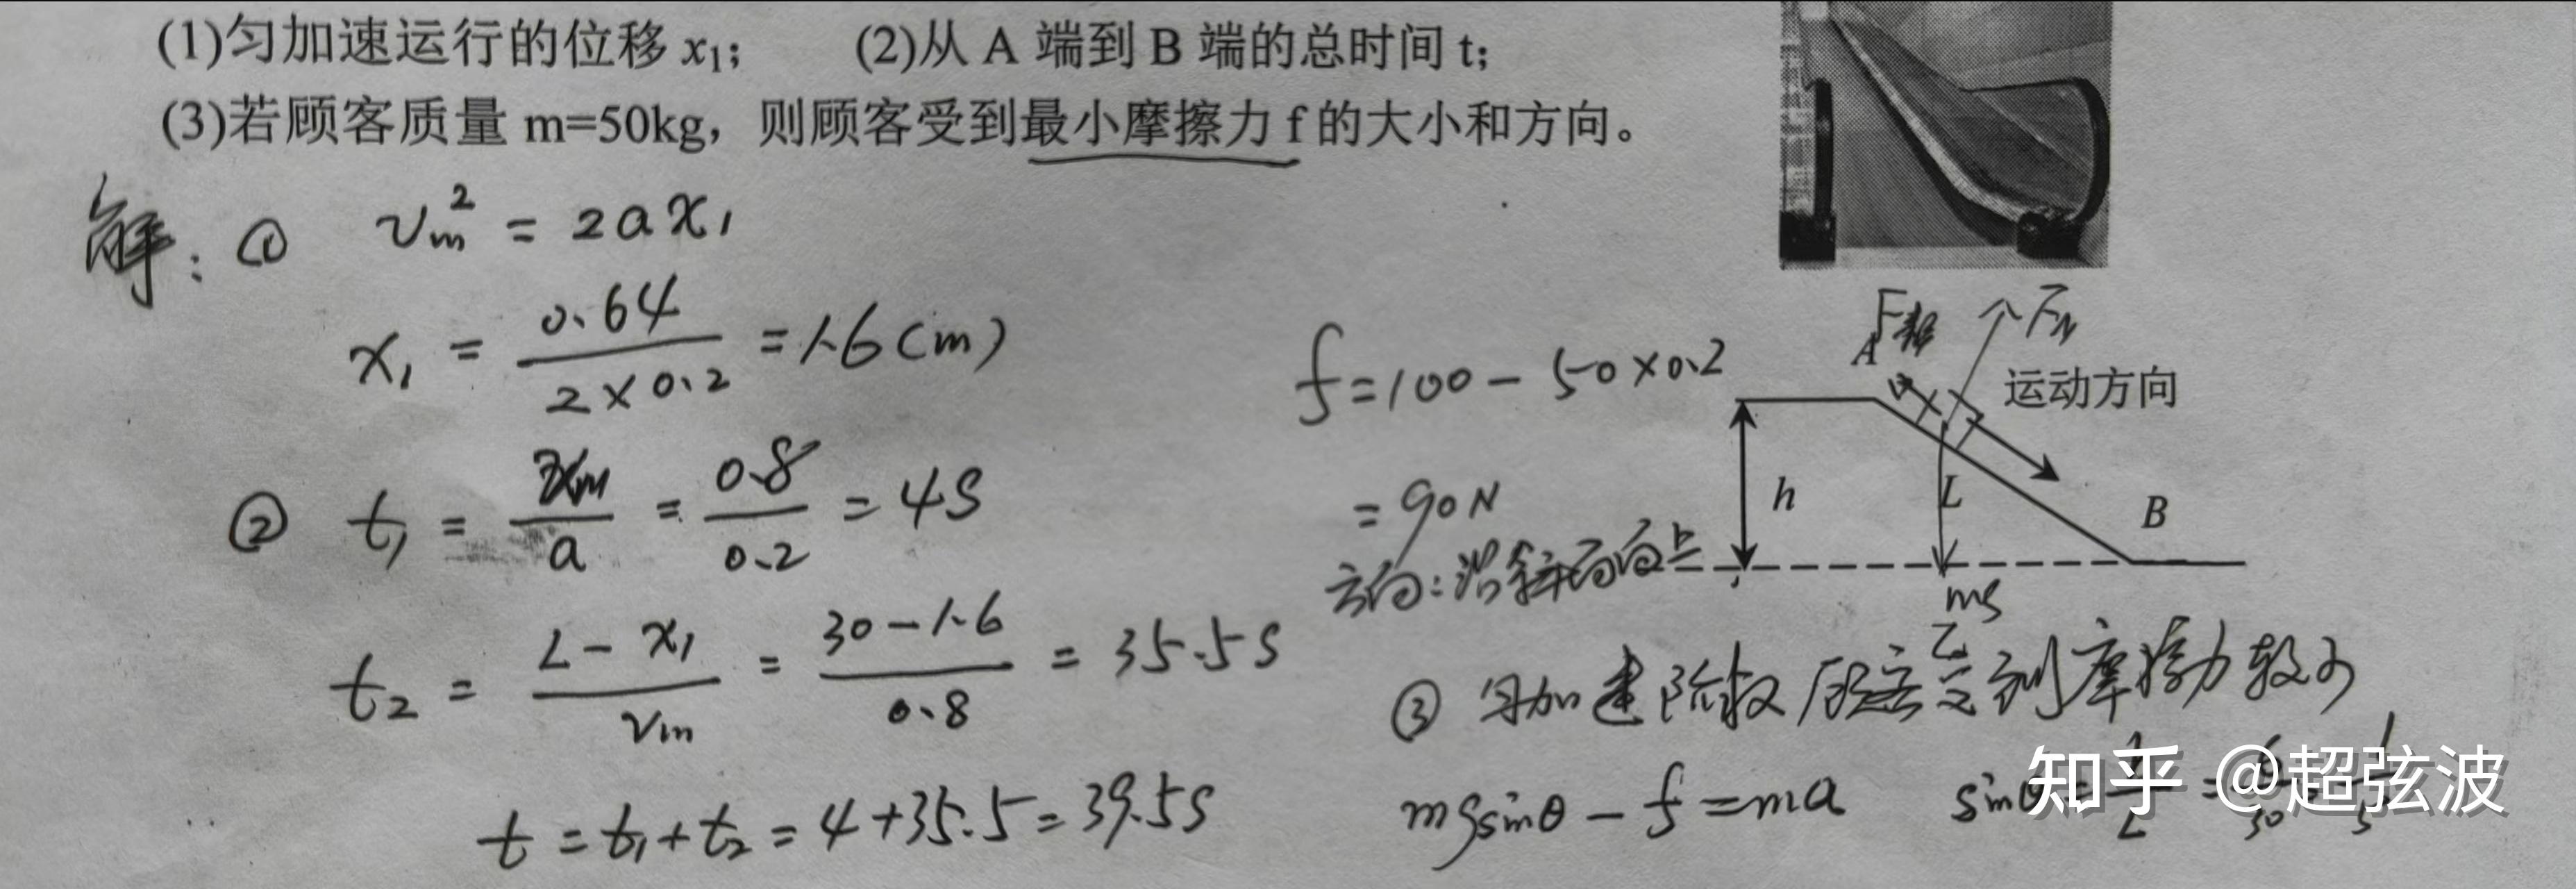 (1)匀加速运行的位移 x₁； (2)从 A 端到 B 端的总时间 t；
(3)若顾客质量 m=50kg，则顾客受到最小摩擦力 f 的大小和方向。
解：① vₘ² = 2ax₁
x₁ = 0.64/(2×0.2) = 1.6(m)
② t₁ = vₘ/a = 0.8/0.2 = 4s
t₂ = (L-x₁)/vₘ = (30-1.6)/0.8 = 35.5s
t = t₁+t₂ = 4+35.5 = 39.5s
F_N
A
运动方向
h
L
B
mg
③ 匀加速阶段顾客受到摩擦力较小
mgsinθ - f = ma sinθ = h/L = 6/30 = 1/5
f = 100 - 50×0.2
= 90N
方向：沿斜面向上
知乎 @超弦波